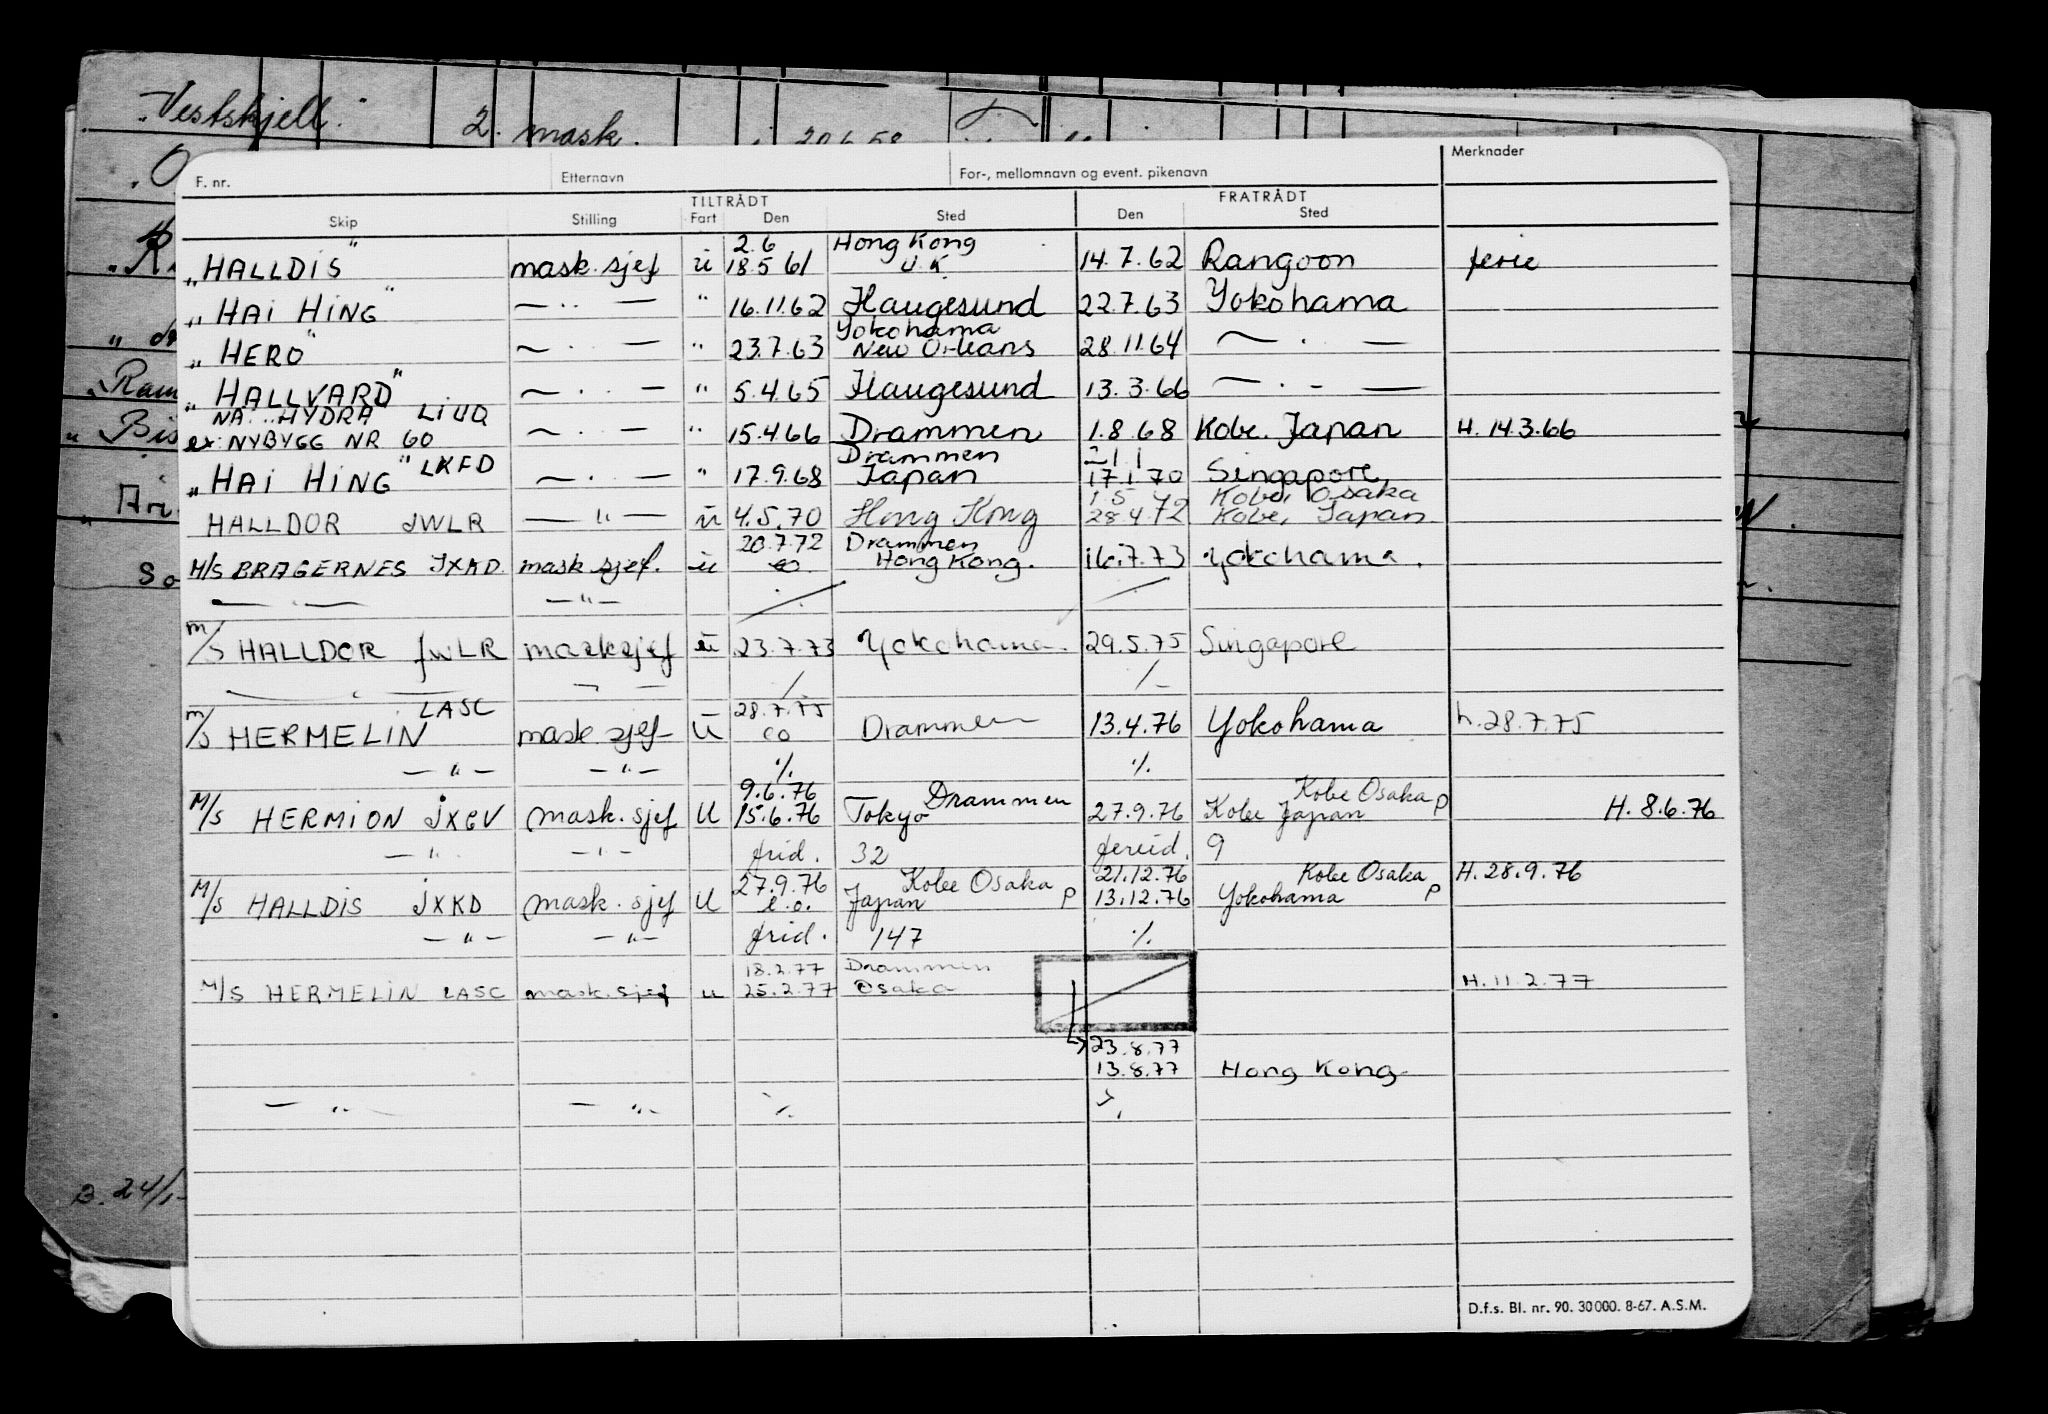 "Vestskjell" 2. mask. 20.6.58
F. nr. Etternavn For-, mellomnavn og event. pikenavn Merknader
TILTRÅDT FRATRÅDT
Skip Stilling Fart Den Sted Den Sted
2.6 Hong Kong
"HALLDIS" mask. sjef ü 18.5 61 U.K. 14.7.62 Rangoon ferie
"HAI HING" — .. — " 16.11.62 Haugesund 22.7.63 Yokohama
Yokohama
"HERO" — . — " 23.7.63 New Orleans 28.11.64 — . —
"HALLVARD" — . — " 5.4.65 Haugesund 13.3.66 — . - —
NÅ .. HYDRA LIUQ
ex. NYBYGG NR 60 — . — " 15.4.66 Drammen 1.8.68 Kobe. Japan H. 14.3.66
Drammen 21 1
"HAI HING" LKFD — . — " 17.9.68 Japan 17.1.70 Singapore
1.5 Kobe, Osaka
HALLDOR JWLR — " — ü 4.5.70 Hong Kong 28.4.72 Kobe, Japan
20.7.72 Drammen
M/S BRAGERNES JXAD mask sjef. ü co. Hong Kong. 16.7.73 Yokohama.
— " — — " — ./. ./.
M/S HALLDOR JWLR masksjef ü 23.7.73 Yokohama. 29.5.75 Singapore
— " — — — ./. ./.
LASC 28.7.75
M/S HERMELIN mask sjef Ü co Drammen 13.4.76 Yokohama h. 28.7.75
— " — — " — ./. ./.
9.6.76 Drammen Kobe Osaka p
M/S HERMION JXCV mask. sjef U 15.6.76 Tokyo 27.9.76 Kobe Japan H. 8.6.76
— " — — " — frid. 32 fereid. 9
27.9.76 Kobe Osaka 21.12.76 Kobe Osaka H. 28.9.76
M/S HALLDIS JXKD mask. sjef U e.o. Japan p 13.12.76 Yokohama p
— " — — " — frid. 147 ./.
18.2.77 Drammen
M/S HERMELIN LASC mask. sjef u 25.2.77 Osaka H. 11.2.77
23.8.77
13.8.77 Hong Kong
— " — — " — ./.
B. 24/1-
D.f.s. Bl. nr. 90. 30000. 8-67. A.S.M.